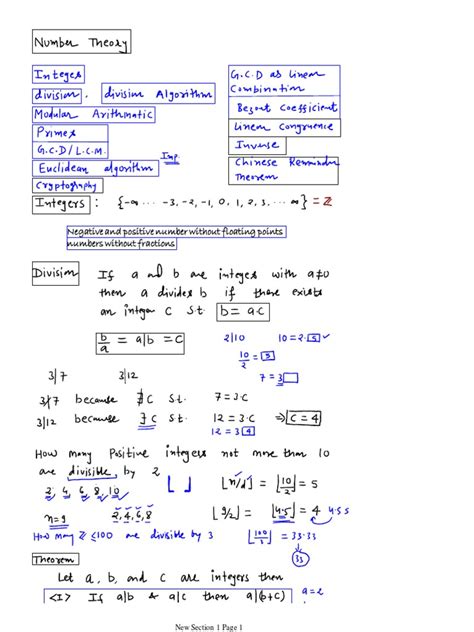 Number Theory
Integes
division, division Algorithm
Modular Arithmatic
Primes
G.C.D/L.C.M.
Euclidean algorithm Imp.
Cryptography
G.C.D as Linear
Combination
Bezout Coefficient
Linear Congruence
Inverse
Chinese Remainder
Theorem
Integers : {-∞ ···· -3, -2, -1, 0, 1, 2, 3, ···· ∞} = ℤ
Negative and positive number without floating points
numbers without fractions
Division If a and b are integers with a≠0
then a divides b if there exists
an integer c s.t. b = a·c
b/a = a|b = c 2|10 10 = 2·5 ✓
10/2 = 5
3|7 3|12 7 = 3
3∤7 because ∄ c s.t. 7 = 3·c
3|12 because ∃ c s.t. 12 = 3·c ⇒ c = 4
12 = 3 4
How many Positive integers not more than 10
are divisible by 2
2, 4, 6, 8, 10 ⌊ ⌋ ⌊n/d⌋ = ⌊10/2⌋ = 5
n=9 2,4,6,8 ⌊9/2⌋ = ⌊4.5⌋ = 4 4.5 5
How many ℤ ≤100 are divisible by 3 ⌊100/3⌋ = 33.33
33
Theorem
Let a, b, and c are integers then
<I> If a|b & a|c then a|(b+c) a=2
New Section 1 Page 1